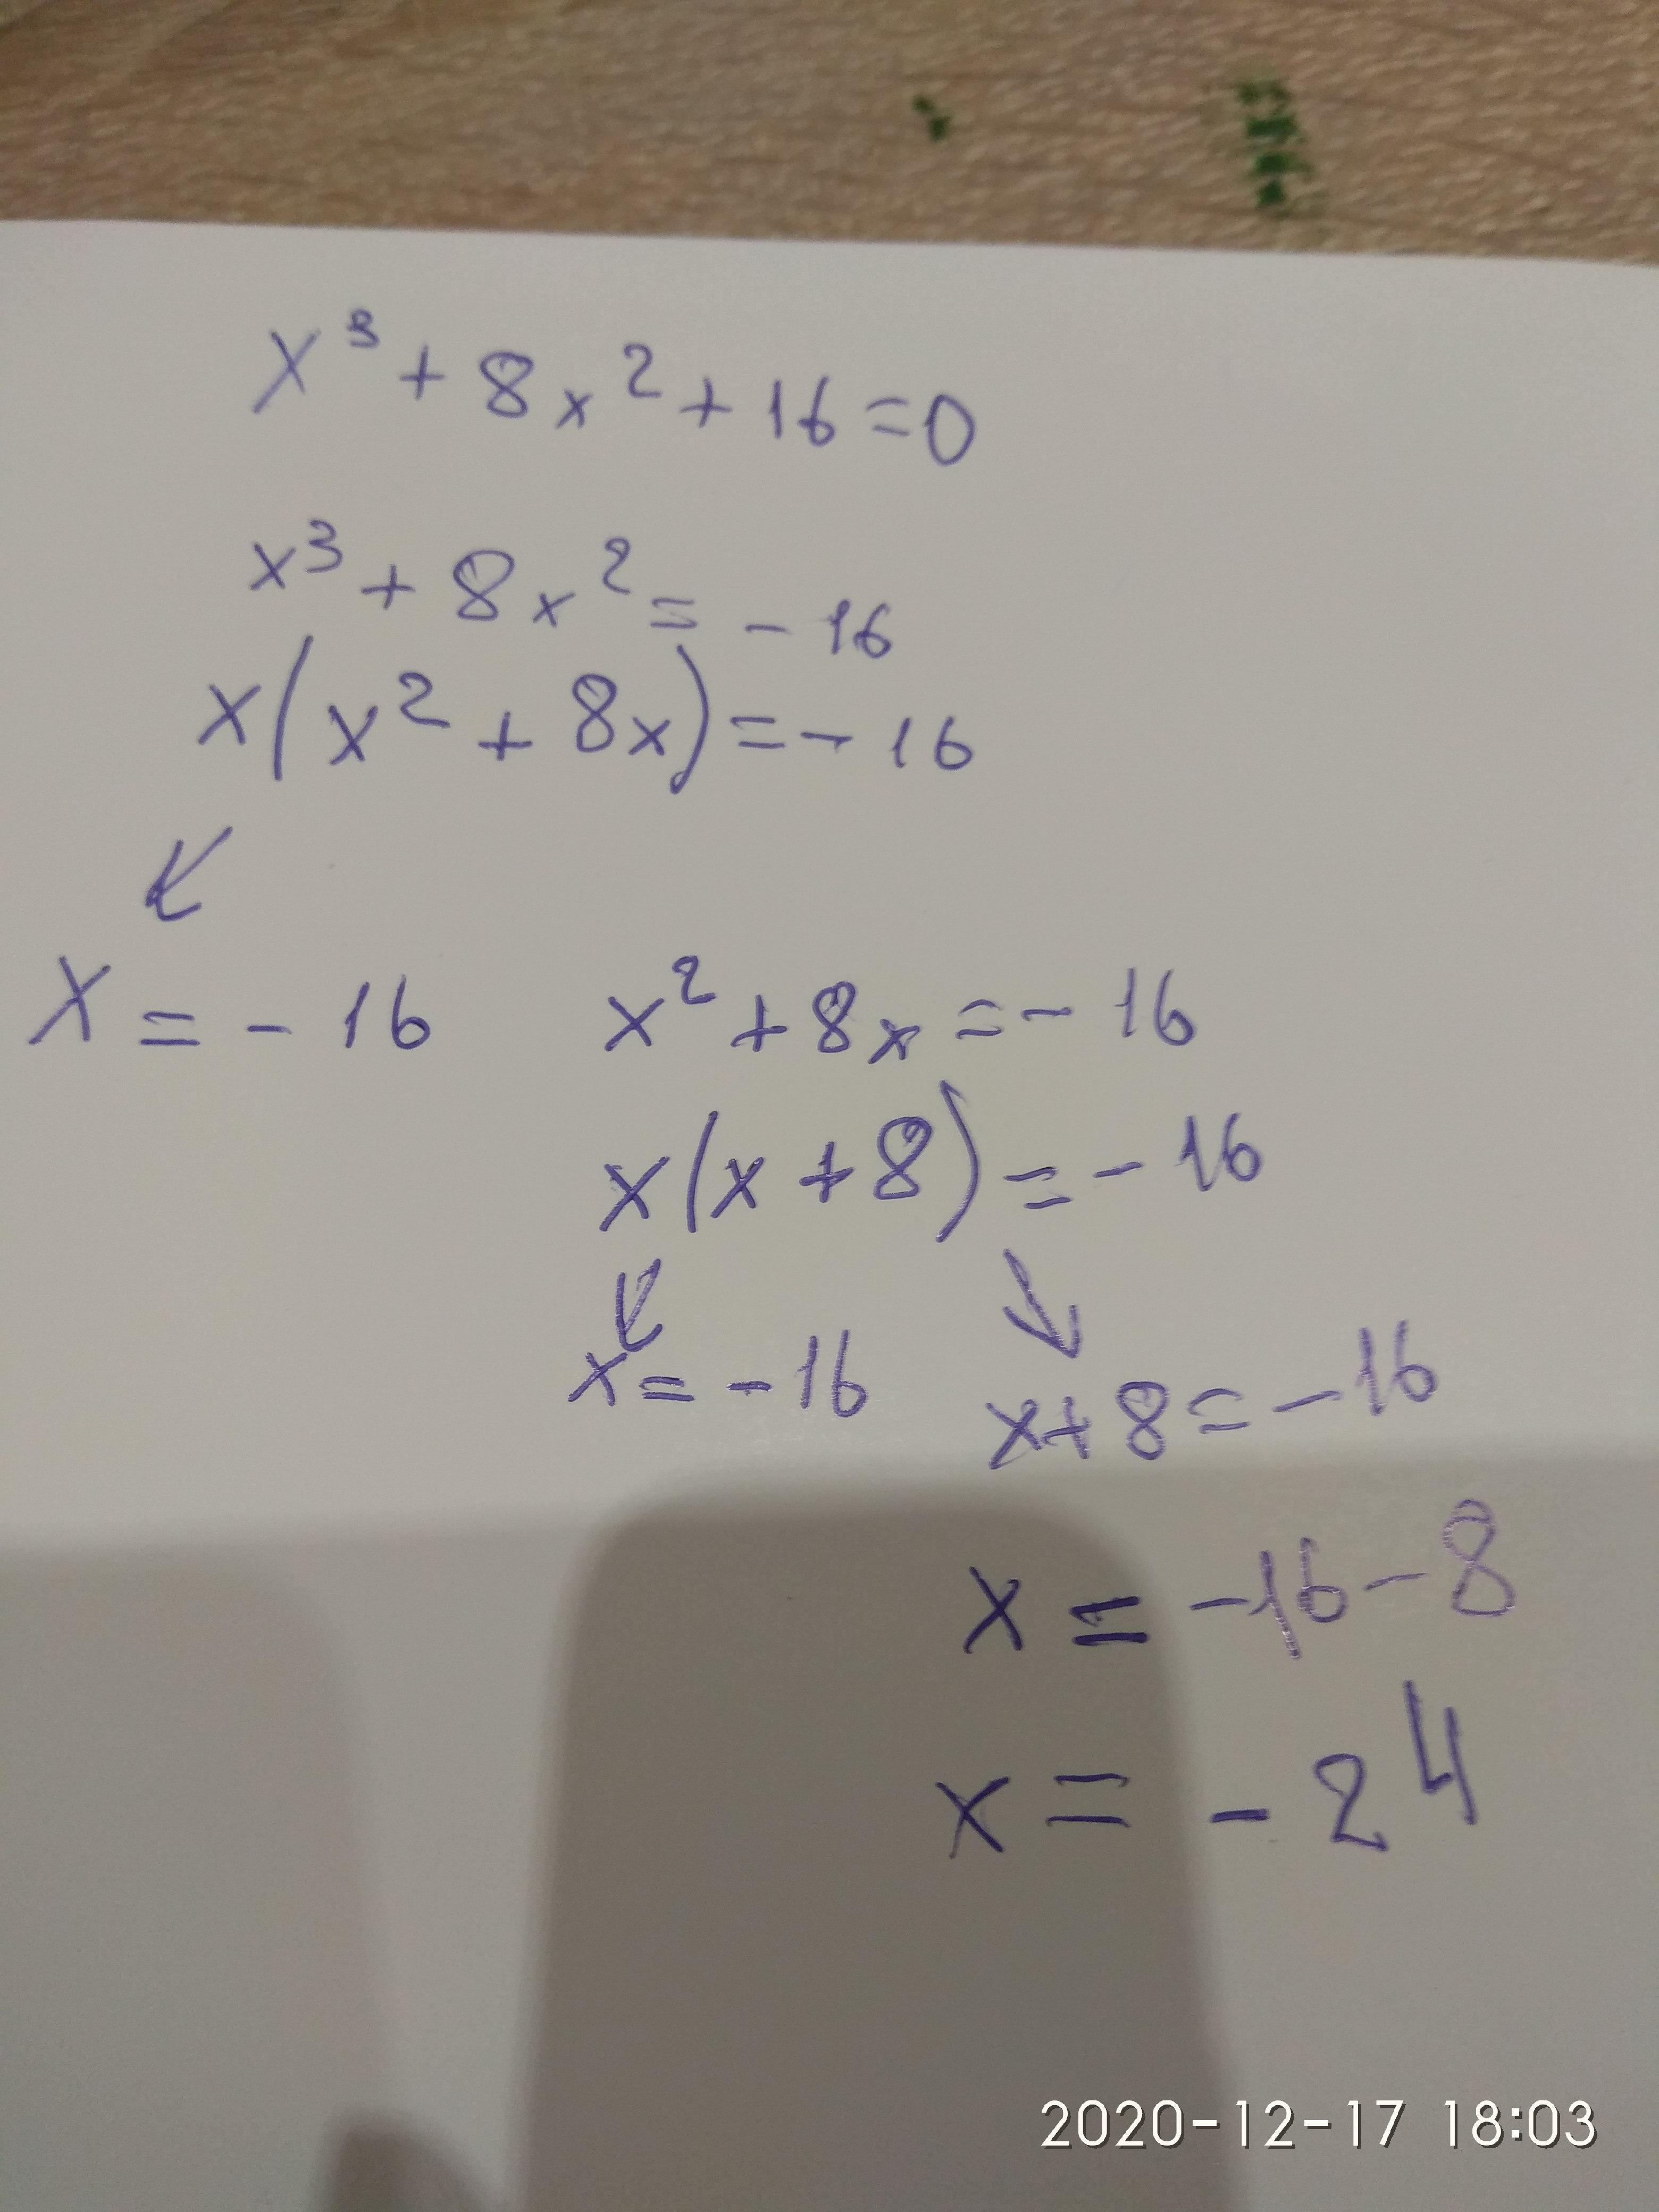 x³ + 8x² + 16 = 0
x³ + 8x² = - 16
x(x² + 8x) = - 16
x = - 16 x² + 8x = - 16
x(x + 8) = - 16
x = - 16 x + 8 = - 16
x = - 16 - 8
x = - 24
2020-12-17 18:03